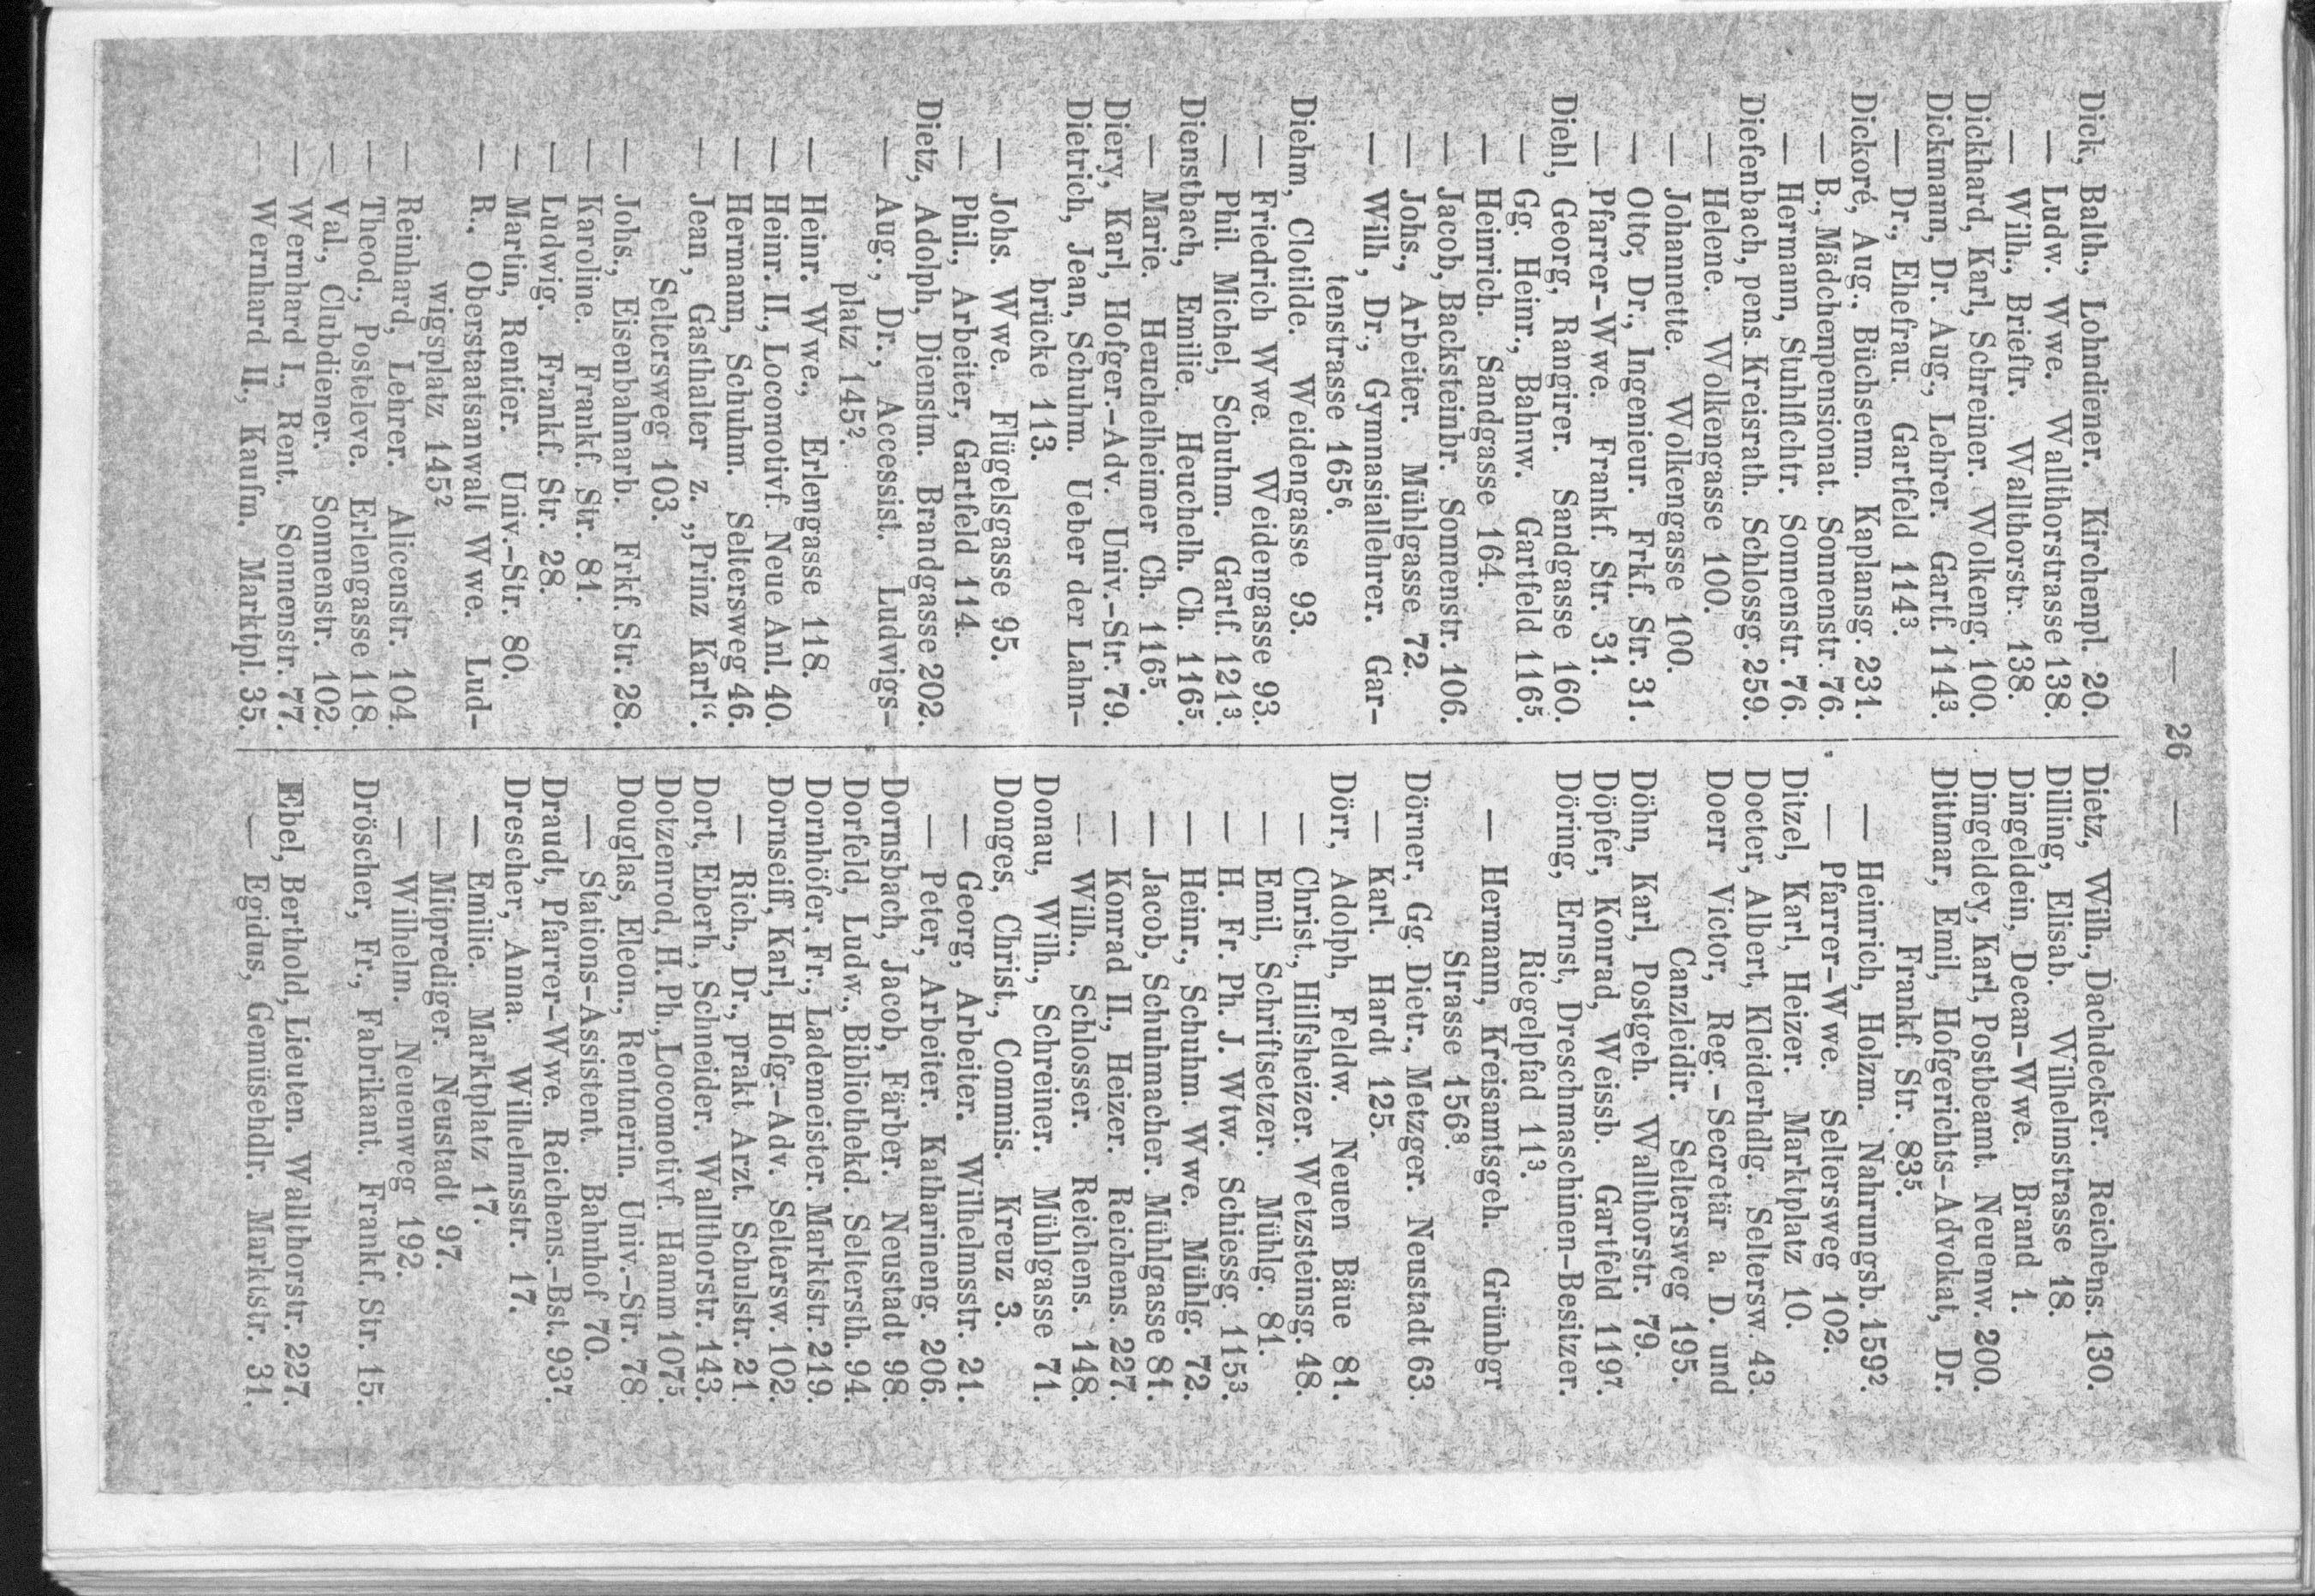 — 26 —
Dick, Balth., Lohndiener. Kirchenpl. 20.
— Ludw. Wwe. Wallthorstrasse 138.
— Wilh., Brieftr. Wallthorstr. 138.
Dickhard, Karl, Schreiner. Wolkeng. 100.
Dickmann, Dr. Aug., Lehrer. Gartf. 114³.
— Dr., Ehefrau. Gartfeld 114³.
Dickoré, Aug., Büchsenm. Kaplansg. 231.
— B., Mädchenpensionat. Sonnenstr. 76.
— Hermann, Stuhlflchtr. Sonnenstr. 76.
Diefenbach, pens. Kreisrath. Schlossg. 259.
— Helene. Wolkengasse 100.
— Johannette. Wolkengasse 100.
— Otto, Dr., Ingenieur. Frkf. Str. 31.
— Pfarrer-Wwe. Frankf. Str. 31.
Diehl, Georg, Rangirer. Sandgasse 160.
— Gg. Heinr., Bahnw. Gartfeld 116⁵.
— Heinrich. Sandgasse 164.
— Jacob, Backsteinbr. Sonnenstr. 106.
— Johs., Arbeiter. Mühlgasse 72.
— Wilh, Dr., Gymnasiallehrer. Gar-
tenstrasse 165⁶.
Diehm, Clotilde. Weidengasse 93.
— Friedrich Wwe. Weidengasse 93.
— Phil. Michel, Schuhm. Gartf. 121³.
Dienstbach, Emilie. Heuchelh. Ch. 116⁵.
— Marie. Heuchelheimer Ch. 116⁵.
Diery, Karl, Hofger.-Adv. Univ.-Str. 79.
Dietrich, Jean, Schuhm. Ueber der Lahn-
brücke 113.
— Johs. Wwe. Flügelsgasse 95.
— Phil., Arbeiter, Gartfeld 114.
Dietz, Adolph, Dienstm. Brandgasse 202.
— Aug., Dr., Accessist. Ludwigs-
platz 145².
— Heinr. Wwe., Erlengasse 118.
— Heinr. II., Locomotivf. Neue Anl. 40.
— Hermann, Schuhm. Seltersweg 46.
— Jean, Gasthalter z. „Prinz Karl“.
Seltersweg 103.
— Johs., Eisenbahnarb. Frkf. Str. 28.
— Karoline. Frankf. Str. 81.
— Ludwig. Frankf. Str. 28.
— Martin, Rentier. Univ.-Str. 80.
— R., Oberstaatsanwalt Wwe. Lud-
wigsplatz 145²
— Reinhard, Lehrer. Alicenstr. 104.
— Theod., Posteleve. Erlengasse 118.
— Val., Clubdiener. Sonnenstr. 102.
— Wernhard I., Rent. Sonnenstr. 77.
— Wernhard II., Kaufm. Marktpl. 35.
Dietz, Wilh., Dachdecker. Reichens. 130.
Dilling, Elisab. Wilhelmstrasse 18.
Dingeldein, Decan-Wwe. Brand 1.
Dingeldey, Karl, Postbeamt. Neuenw. 200.
Dittmar, Emil, Hofgerichts-Advokat, Dr.
Frankf. Str. 83⁵.
— Heinrich, Holzm. Nahrungsb. 159².
— Pfarrer-Wwe. Seltersweg 102.
Ditzel, Karl, Heizer. Marktplatz 10.
Docter, Albert, Kleiderhdlg. Seltersw. 43.
Doerr Victor, Reg.-Secretär a. D. und
Canzleidir. Seltersweg 195.
Döhn, Karl, Postgeh. Wallthorstr. 79.
Döpfer, Konrad, Weissb. Gartfeld 119⁷.
Döring, Ernst, Dreschmaschinen-Besitzer.
Riegelpfad 11³.
— Hermann, Kreisamtsgeh. Grünbgr
Strasse 156⁸.
Dörner, Gg. Dietr., Metzger. Neustadt 63.
— Karl. Hardt 125.
Dörr, Adolph, Feldw. Neuen Bäue 81.
— Christ., Hilfsheizer. Wetzsteinsg. 48.
— Emil, Schriftsetzer. Mühlg. 81.
— H. Fr. Ph. J. Wtw. Schiessg. 115³.
— Heinr., Schuhm. Wwe. Mühlg. 72.
— Jacob, Schuhmacher. Mühlgasse 81.
— Konrad II., Heizer. Reichens. 227.
— Wilh., Schlosser. Reichens. 148.
Donau, Wilh., Schreiner. Mühlgasse 71.
Donges, Christ., Commis. Kreuz 3.
— Georg, Arbeiter. Wilhelmsstr. 21.
— Peter, Arbeiter. Katharineng. 206.
Dornsbach, Jacob, Färber. Neustadt 98.
Dorfeld, Ludw., Bibliothekd. Seltersth. 94.
Dornhöfer, Fr., Lademeister. Marktstr. 219.
Dornseiff, Karl, Hofg.-Adv. Seltersw. 102.
— Rich., Dr., prakt Arzt. Schulstr. 21.
Dort, Eberh., Schneider. Wallthorstr. 143.
Dotzenrod, H. Ph., Locomotivf. Hamm 107⁵.
Douglas, Eleon., Rentnerin. Univ.-Str. 78.
— Stations-Assistent. Bahnhof 70.
Draudt, Pfarrer-Wwe. Reichens.-Bst. 93⁷.
Drescher, Anna. Wilhelmsstr. 17.
— Emilie. Marktplatz 17.
— Mitprediger. Neustadt 97.
— Wilhelm. Neuenweg 192.
Dröscher, Fr., Fabrikant. Frankf. Str. 15.
Ebel, Berthold, Lieuten. Wallthorstr. 227.
— Egidus, Gemüsehdlr. Marktstr. 31.